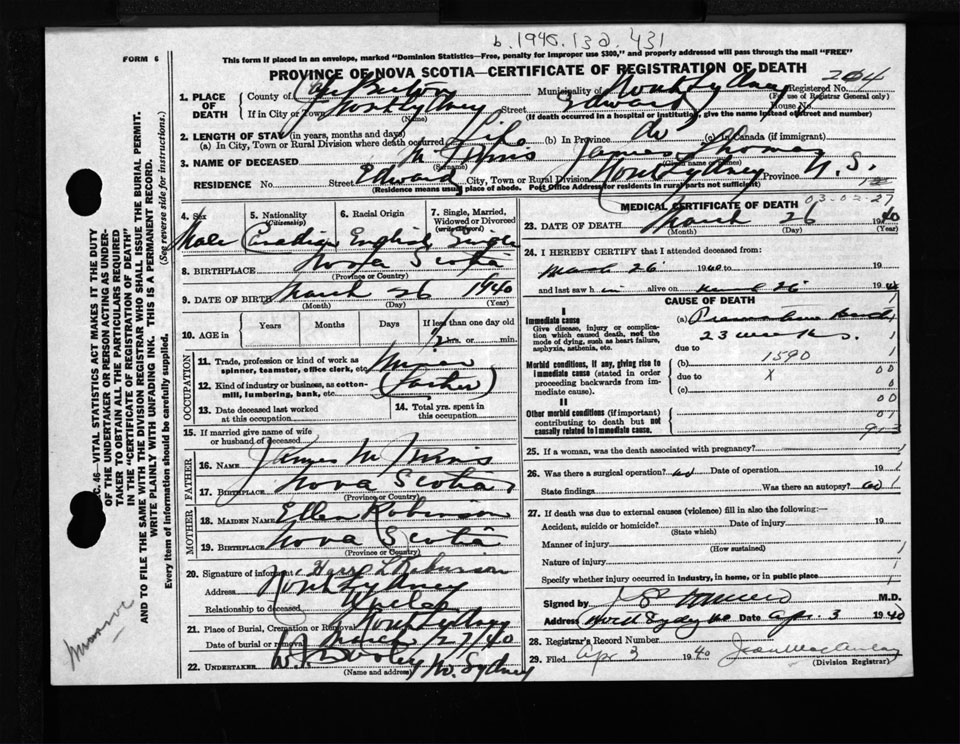 b. 1940. 132. 431
This form if placed in an envelope, marked "Dominion Statistics—Free, penalty for improper use $300," and properly addressed will pass through the mail "FREE"
FORM 6
PROVINCE OF NOVA SCOTIA—CERTIFICATE OF REGISTRATION OF DEATH
1. PLACE OF DEATH
County of Cape Breton Municipality of North Sydney Registered No. 204
(For use of Registrar General only)
If in City or Town North Sydney Street Edward House No.
(Name) (If death occurred in a hospital or institution, give the name instead of street and number)
2. LENGTH OF STAY (in years, months and days)
(a) In City, Town or Rural Division where death occurred Life (b) In Province do (c) In Canada (if immigrant)
3. NAME OF DECEASED James Thomas
(Surname) (Given name or names)
RESIDENCE No. Street Edward City, Town or Rural Division North Sydney Province N.S.
(Residence means usual place of abode. Post Office Address for residents in rural parts not sufficient)
4. Sex 5. Nationality (Citizenship) 6. Racial Origin 7. Single, Married, Widowed or Divorced (write the word)
Male Canadian English Single
8. BIRTHPLACE Nova Scotia
(Province or Country)
9. DATE OF BIRTH March 26 1940
(Month) (Day) (Year)
10. AGE in Years Months Days If less than one day old
1/2 hrs. or min.
OCCUPATION
11. Trade, profession or kind of work as spinner, teamster, office clerk, etc.
12. Kind of industry or business, as cotton-mill, lumbering, bank, etc. (Father)
13. Date deceased last worked at this occupation
14. Total yrs. spent in this occupation
15. If married give name of wife or husband of deceased
FATHER
16. NAME James
17. BIRTHPLACE Nova Scotia
(Province or Country)
MOTHER
18. MAIDEN NAME Ellen Robinson
19. BIRTHPLACE Nova Scotia
(Province or Country)
20. Signature of informant Harry L Robinson
Address North Sydney
Relationship to deceased Uncle
21. Place of Burial, Cremation or Removal North Sydney
Date of burial or removal March 27/40
22. UNDERTAKER No. Sydney
(Name and address)
MEDICAL CERTIFICATE OF DEATH
03-02-27
23. DATE OF DEATH March 26 1940
(Month) (Day) (Year)
24. I HEREBY CERTIFY that I attended deceased from:
March 26 1940 to 19
and last saw h im alive on March 26 1940
CAUSE OF DEATH
I
Immediate cause
Give disease, injury or complication which caused death, not the mode of dying, such as heart failure, asphyxia, asthenia, etc.
(a) Premature Birth
23 weeks.
due to
Morbid conditions, if any, giving rise to immediate cause (stated in order proceeding backwards from immediate cause).
(b) 1590
due to X
(c)
II
Other morbid conditions (if important) contributing to death but not causally related to immediate cause.
25. If a woman, was the death associated with pregnancy?
26. Was there a surgical operation? no Date of operation 19
State findings Was there an autopsy? no
27. If death was due to external causes (violence) fill in also the following:—
Accident, suicide or homicide? Date of injury 19
(State which)
Manner of injury
(How sustained)
Nature of injury
Specify whether injury occurred in industry, in home, or in public place
Signed by M.D.
Address North Sydney Date Apr. 3 1940
28. Registrar's Record Number
29. Filed Apr 3 1940 Jean MacAulay
(Division Registrar)
C. 46—VITAL STATISTICS ACT MAKES IT THE DUTY
OF THE UNDERTAKER OR PERSON ACTING AS UNDER-
TAKER TO OBTAIN ALL THE PARTICULARS REQUIRED
IN THE "CERTIFICATE OF REGISTRATION OF DEATH"
AND TO FILE THE SAME WITH THE DIVISION REGISTRAR WHO SHALL ISSUE THE BURIAL PERMIT.
WRITE PLAINLY WITH UNFADING INK. THIS IS A PERMANENT RECORD.
Every item of information should be carefully supplied. (See reverse side for instructions.)